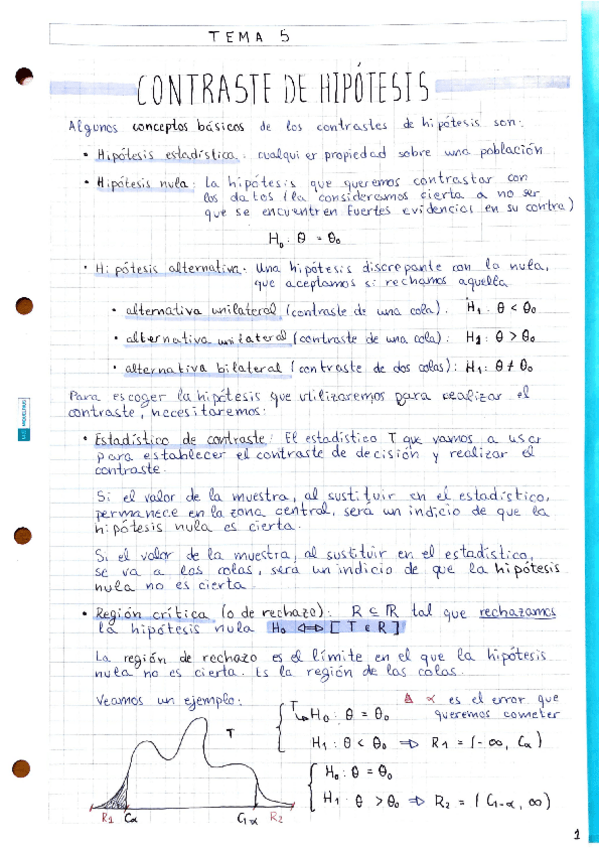 TEMA 5
CONTRASTE DE HIPÓTESIS
Algunos conceptos básicos de los contrastes de hipótesis son:
• Hipótesis estadística: cualquier propiedad sobre una población
• Hipótesis nula: La hipótesis que queremos contrastar con
los datos (la consideramos cierta a no ser
que se encuentren fuertes evidencias en su contra)
H₀: θ = θ₀
• Hipótesis alternativa: Una hipótesis discrepante con la nula,
que aceptamos si rechamos aquella
• alternativa unilateral (contraste de una cola): H₁: θ < θ₀
• alternativa unilateral (contraste de una cola): H₁: θ > θ₀
• alternativa bilateral (contraste de dos colas): H₁: θ ≠ θ₀
Para escoger la hipótesis que utilizaremos para realizar el
contraste, necesitaremos:
• Estadístico de contraste: El estadístico T que vamos a usar
para establecer el contraste de decisión y realizar el
contraste.
Si el valor de la muestra, al sustituir en el estadístico,
permanece en la zona central, será un indicio de que la
hipótesis nula es cierta.
Si el valor de la muestra, al sustituir en el estadístico,
se va a las colas, será un indicio de que la hipótesis
nula no es cierta
• Región crítica (o de rechazo): R ⊆ ℝ tal que rechazamos
la hipótesis nula H₀ ⟺ [T ∈ R]
La región de rechazo es el límite en el que la hipótesis
nula no es cierta. Es la región de las colas.
Veamos un ejemplo:
T
H₀: θ = θ₀
α es el error que
queremos cometer
T
H₁: θ < θ₀ ⇒ R₁ = (-∞, Cα)
H₀: θ = θ₀
H₁: θ > θ₀ ⇒ R₂ = (C₁₋α, ∞)
R₁ Cα C₁₋α R₂
1